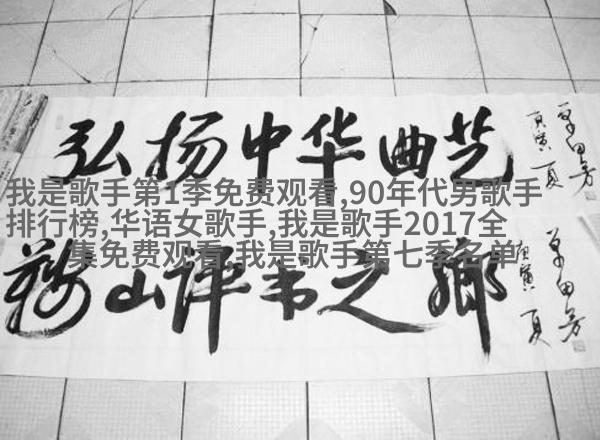 弘扬中华曲艺
庚寅 夏
单田芳
我是歌手第1季免费观看,90年代男歌手
排行榜,华语女歌手,我是歌手2017全
集免费观看,我是歌手第七季名单
鞍山评书之鄉
庚寅 夏
单田芳